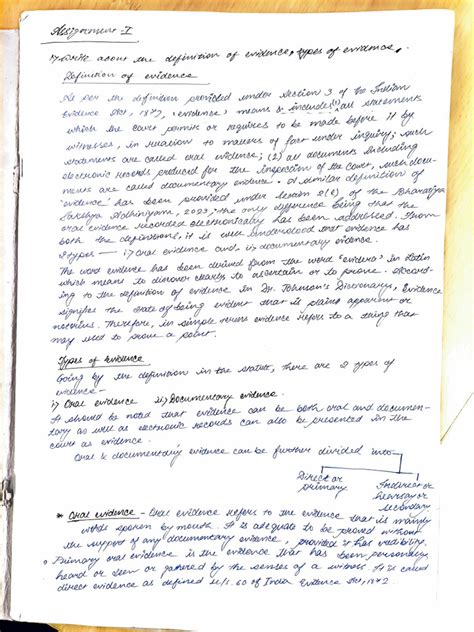 Assignment-I
1) Write about the definition of evidence, types of evidence.
Definition of evidence
As per the definition provided under section 3 of the Indian
Evidence Act, 1872, 'evidence' means & includes (1) all statements
which the court permits or requires to be made before it by
witnesses, in relation to matters of fact under inquiry; such
statements are called oral evidence; (2) all documents including
electronic records produced for the inspection of the court, such docu-
ments are called documentary evidence. A similar definition of
'evidence' has been provided under section 2(e) of the Bharatiya
Sakshya Adhiniyam, 2023, the only difference being that the
oral evidence recorded electronically has been addressed. From
both the definitions, it is well understood that evidence has
2 types — i) oral evidence and ii) documentary evidence.
The word evidence has been derived from the word in Latin
which means to discover clearly to ascertain or to prove. Accord-
ing to the definition of evidence in Dr. Johnson's Dictionary, Evidence
signifies the state of being evident that is plain, apparent or
notorious. Therefore, in simple terms evidence refers to a thing that
may used to prove a point.
Types of Evidence
Going by the definition in the statute, there are 2 types of
evidence -
i) Oral evidence ii) Documentary evidence.
It should be noted that evidence can be both oral and documen-
tary as well as electronic records can also be presented in the
court as evidence.
Oral & documentary evidence can be further divided into -
Direct or
primary
Indirect or
hearsay or
secondary
* Oral evidence - Oral evidence refers to the evidence that is mainly
words spoken by mouth. It is adequate to be proved without
the support of any documentary evidence, provided it has credibility.
Primary oral evidence is the evidence that has been personally
heard or seen or gathered by the senses of a witness. It is called
direct evidence as defined u/s. 60 of India Evidence Act, 1872.